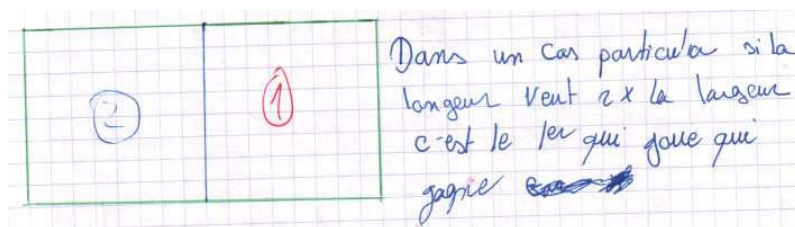 2
1
Dans un cas particuler si la
longeur veut 2 x la largeur
c'est le 1er qui joue qui
gagne